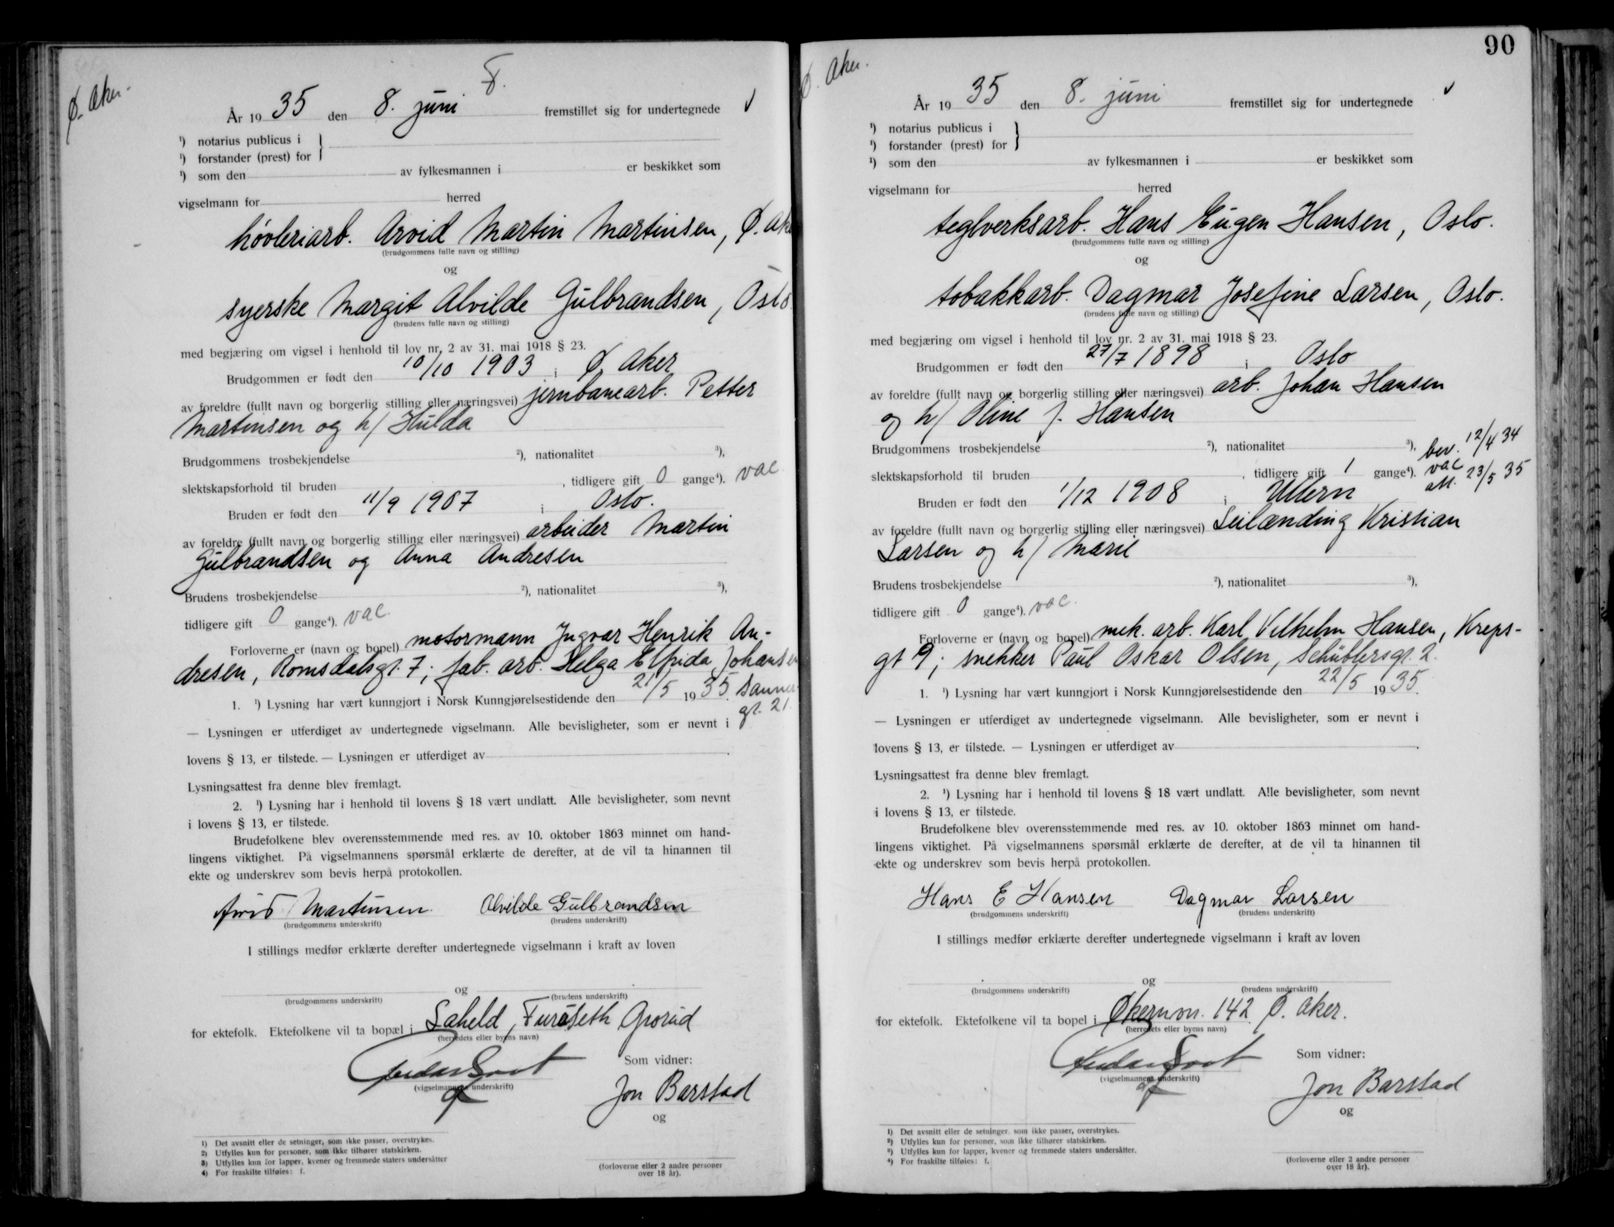 Ø. Aker.
8.
År 19 35 den 8. juni fremstillet sig for undertegnede
¹) notarius publicus i
¹) forstander (prest) for
¹) som den av fylkesmannen i er beskikket som
vigselmann for herred
høvleriarb. Arvid Martin Martinsen, Ø. Ake
(brudgommens fulle navn og stilling)
og
syerske Margit Alvilde Gulbrandsen, Oslo
(brudens fulle navn og stilling)
med begjæring om vigsel i henhold til lov nr. 2 av 31. mai 1918 § 23.
Brudgommen er født den 10/10 1903 i Ø. Aker
av foreldre (fullt navn og borgerlig stilling eller næringsvei) jernbanearb. Petter
Martinsen og h/ Hulda
Brudgommens trosbekjendelse ²), nationalitet ³),
slektskapsforhold til bruden , tidligere gift 0 gange⁴). vac
Bruden er født den 11/9 1907 i Oslo.
av foreldre (fullt navn og borgerlig stilling eller næringsvei) arbeider Martin
Gulbrandsen og Anna Andresen
Brudens trosbekjendelse ²), nationalitet ³),
tidligere gift 0 gange⁴). vac.
Forloverne er (navn og bopel) motormann Ingvar Henrik An-
dresen, Romsdalsgt. 7; fab. arb. Helga Elfrida Johansen
1. ¹) Lysning har vært kunngjort i Norsk Kunngjørelsestidende den 21/5 1935. Sanner
gt. 21.
— Lysningen er utferdiget av undertegnede vigselmann. Alle bevisligheter, som er nevnt i
lovens § 13, er tilstede. — Lysningen er utferdiget av
Lysningsattest fra denne blev fremlagt.
2. ¹) Lysning har i henhold til lovens § 18 vært undlatt. Alle bevisligheter, som nevnt
i lovens § 13, er tilstede.
Brudefolkene blev overensstemmende med res. av 10. oktober 1863 minnet om hand-
lingens viktighet. På vigselmannens spørsmål erklærte de derefter, at de vil ta hinannen til
ekte og underskrev som bevis herpå protokollen.
Arvid Martinsen Alvilde Gulbrandsen
(brudgommens underskrift) (brudens underskrift)
I stillings medfør erklærte derefter undertegnede vigselmann i kraft av loven
og
(brudgommens underskrift) (brudens underskrift)
for ektefolk. Ektefolkene vil ta bopæl i Furuseth Grorud
(herredets eller byens navn)
Som vidner:
(vigselmannens underskrift)
Jon Barstad
og
1) Det avsnitt eller de setninger, som ikke passer, overstrykes.
2) Utfylles kun for personer, som ikke tilhører statskirken.
3) Utfylles kun for lapper, kvener og fremmede staters undersåtter
4) For fraskilte tilføies: f.
(forloverne eller 2 andre personer
over 18 år).
90
Ø. Aker.
År 19 35 den 8. juni fremstillet sig for undertegnede
¹) notarius publicus i
¹) forstander (prest) for
¹) som den av fylkesmannen i er beskikket som
vigselmann for herred
teglverksarb. Hans Eugen Hansen, Oslo.
(brudgommens fulle navn og stilling)
og
tobakkarb. Dagmar Josefine Larsen, Oslo.
(brudens fulle navn og stilling)
med begjæring om vigsel i henhold til lov nr. 2 av 31. mai 1918 § 23.
Brudgommen er født den 27/7 1898 i Oslo
av foreldre (fullt navn og borgerlig stilling eller næringsvei) arb. Johan Hansen
og h/ Oline J. Hansen
Brudgommens trosbekjendelse ²), nationalitet ³), bev. 12/4 34
slektskapsforhold til bruden , tidligere gift 1 gange⁴). vac
att. 23/5 35
Bruden er født den 1/12 1908 i Ullern
av foreldre (fullt navn og borgerlig stilling eller næringsvei) Leilænding Kristian
Larsen og h/ Marie
Brudens trosbekjendelse ²), nationalitet ³),
tidligere gift 0 gange⁴). vac.
Forloverne er (navn og bopel) mek. arb. Karl Vilhelm Hansen, Kreps-
gt 9; snekker Paul Oskar Olsen, Schüblersgt. 2.
1. ¹) Lysning har vært kunngjort i Norsk Kunngjørelsestidende den 22/5 1935.
— Lysningen er utferdiget av undertegnede vigselmann. Alle bevisligheter, som er nevnt i
lovens § 13, er tilstede. — Lysningen er utferdiget av
Lysningsattest fra denne blev fremlagt.
2. ¹) Lysning har i henhold til lovens § 18 vært undlatt. Alle bevisligheter, som nevnt
i lovens § 13, er tilstede.
Brudefolkene blev overensstemmende med res. av 10. oktober 1863 minnet om hand-
lingens viktighet. På vigselmannens spørsmål erklærte de derefter, at de vil ta hinannen til
ekte og underskrev som bevis herpå protokollen.
Hans E Hansen Dagmar Larsen
(brudgommens underskrift) (brudens underskrift)
I stillings medfør erklærte derefter undertegnede vigselmann i kraft av loven
og
(brudgommens underskrift) (brudens underskrift)
for ektefolk. Ektefolkene vil ta bopel i Økernvn. 142 Ø. Aker.
(herredets eller byens navn)
Som vidner:
(vigselmannens underskrift)
Jon Barstad
og
1) Det avsnitt eller de setninger, som ikke passer, overstrykes.
2) Utfylles kun for personer, som ikke tilhører statskirken.
3) Utfylles kun for lapper, kvener og fremmede staters undersåtter.
4) For fraskilte tilføies: f.
(forloverne eller 2 andre personer
over 18 år).